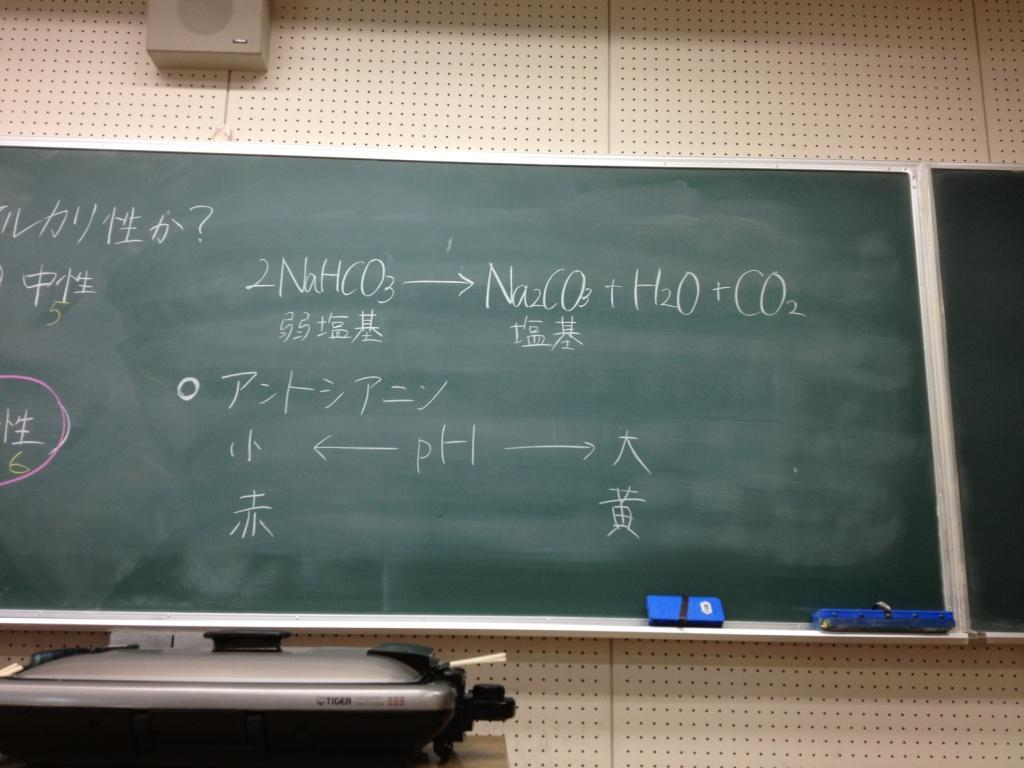 ルカリ性か?
中性
5
性
6
2NaHCO₃ → Na₂CO₃ + H₂O + CO₂
弱塩基 塩基
○ アントシアニン
小 ← pH → 大
赤 黄
TIGER